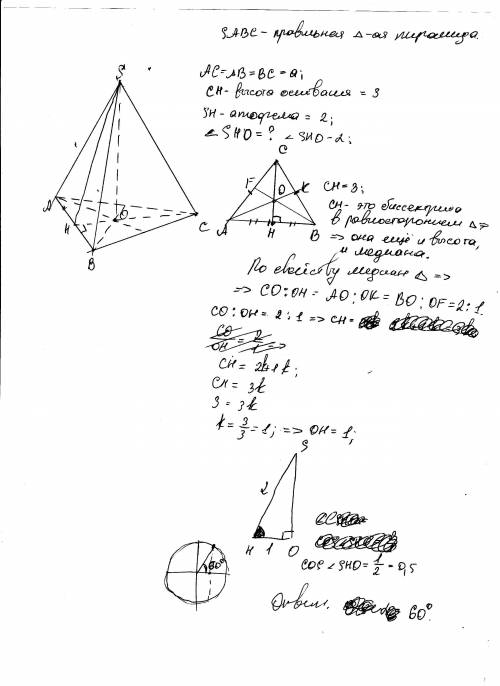 SABC - правильная Δ-ая пирамида.
AC = AB = BC = a;
CH - высота основания = 3
SH - апофема = 2;
∠SHO = ? ∠SHO - 2;
S
A
H
B
O
C
C
F
O
K
A
H
B
CH = 3;
CH - это биссектриса
в равностороннем Δ
=> она ещё и высота,
и медиана.
По свойству медиан Δ =>
=> CO : OH = AO : OK = BO : OF = 2 : 1.
CO : OH = 2 : 1 => CH =
CO/OH = 2/1 =>
CH = 2k + k;
CH = 3k
3 = 3k
k = 3/3 = 1; => OH = 1;
S
2
H 1 O
60°
cos ∠SHO = 1/2 = 0,5
Ответ. 60°.